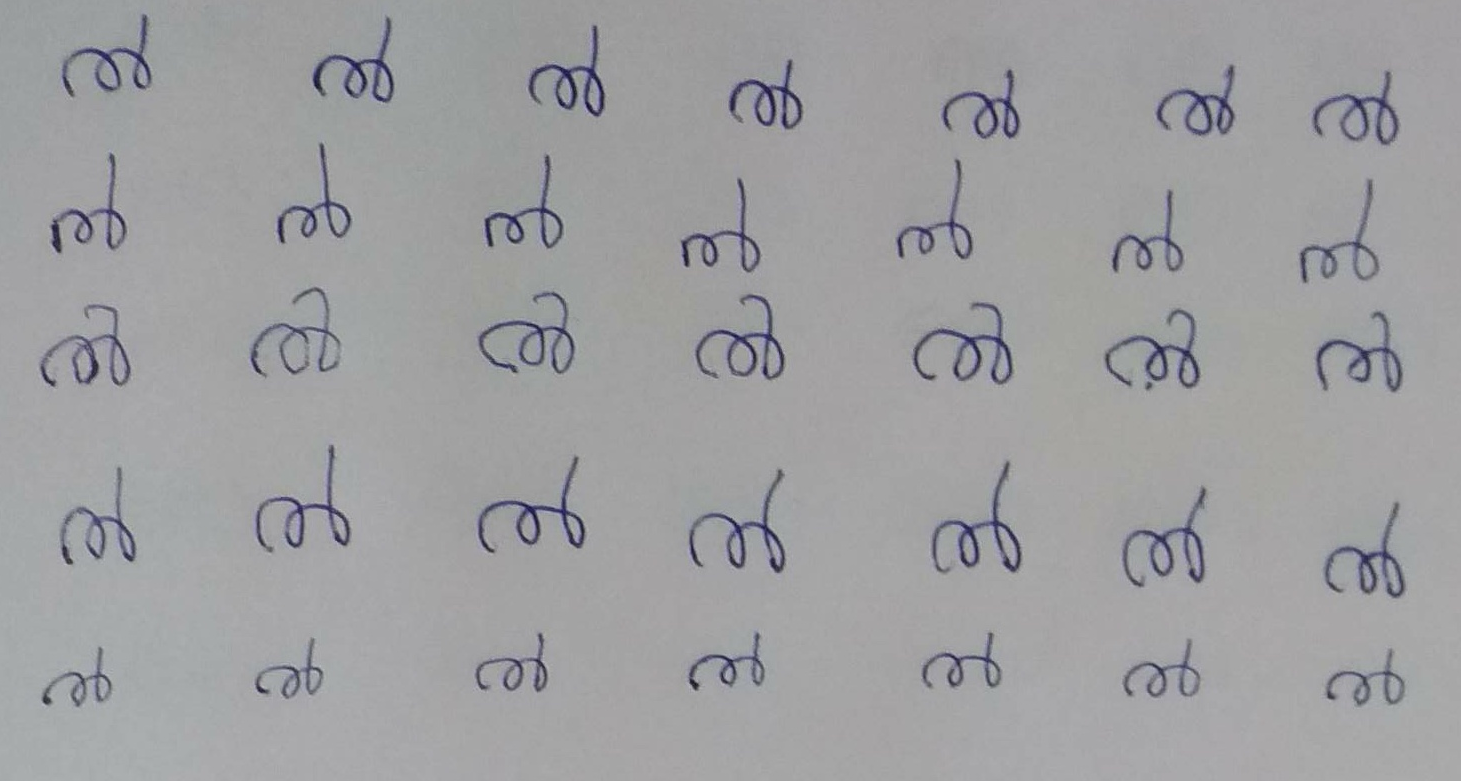 ൽ ൽ ൽ ൽ ൽ ൽ ൽ
ൽ ൽ ൽ ൽ ൽ ൽ ൽ
ൽ ൽ ൽ ൽ ൽ ൽ ൽ
ൽ ൽ ൽ ൽ ൽ ൽ ൽ
ൽ ൽ ൽ ൽ ൽ ൽ ൽ